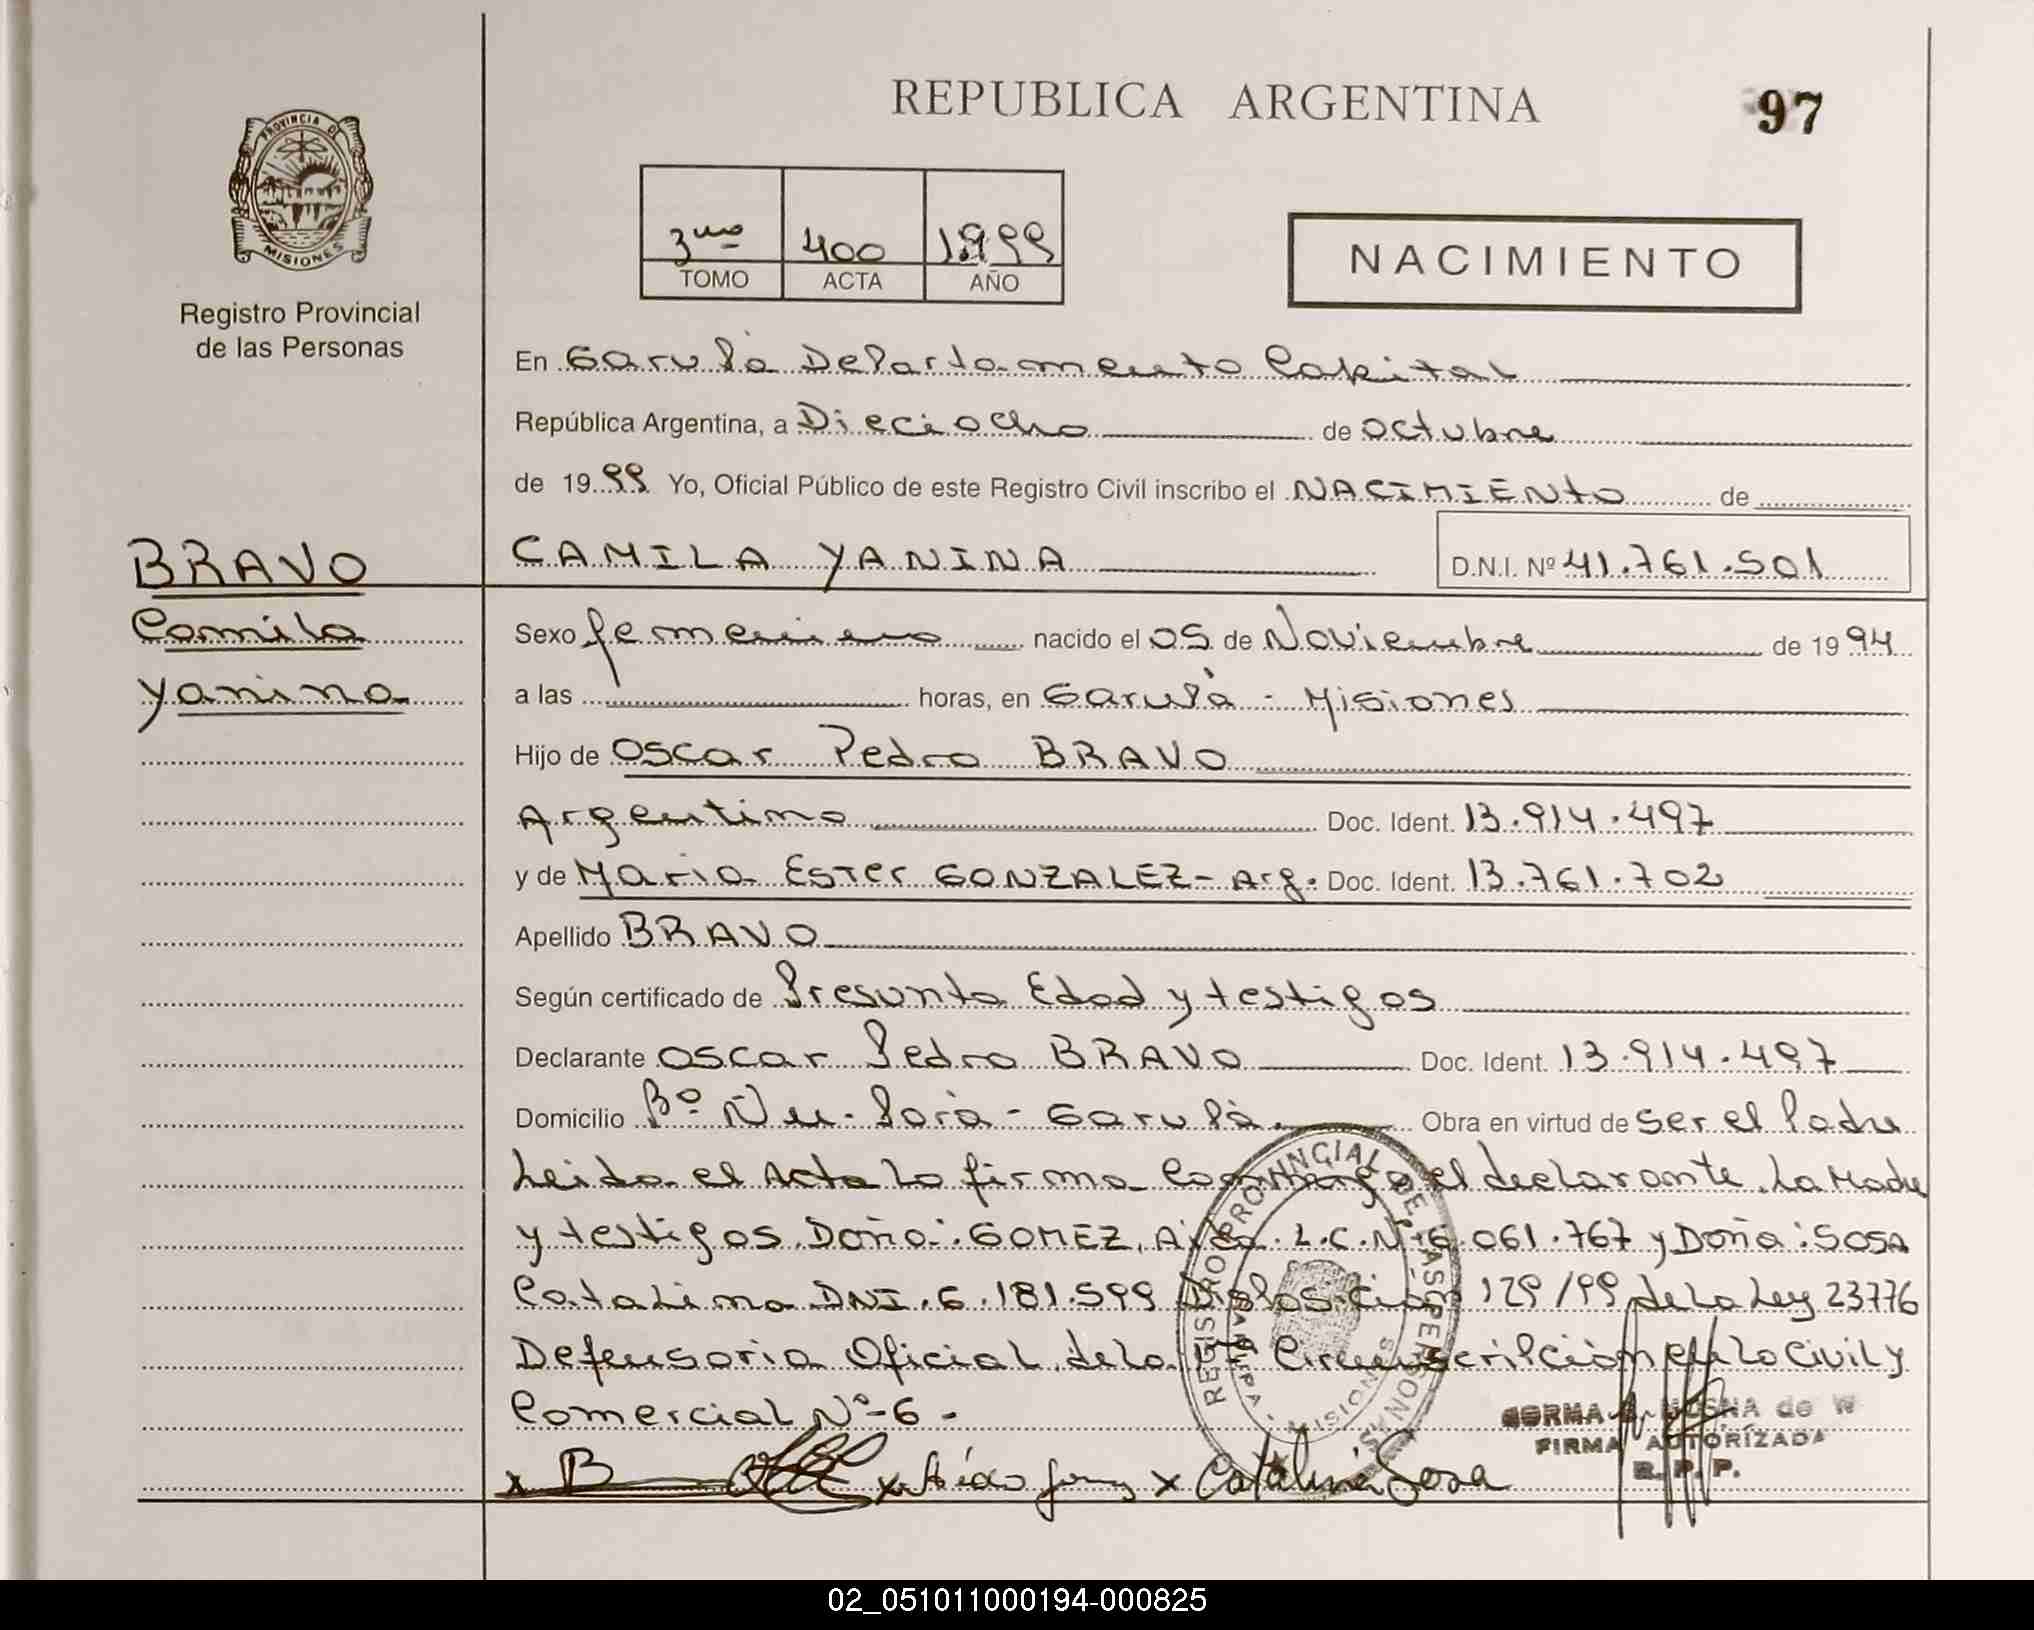 REPUBLICA ARGENTINA
97
PROVINCIA D
MISIONES
Registro Provincial
de las Personas
3ro 400 1999
TOMO ACTA AÑO
NACIMIENTO
En Garupá Departamento Capital
República Argentina, a Dieciocho de octubre
de 1999 Yo, Oficial Público de este Registro Civil inscribo el NACIMIENTO de
BRAVO
CAMILA YANINA D.N.I. Nº 41.761.501
Camila
Yanina
Sexo femenino nacido el 05 de Noviembre de 1994
a las horas, en Garupá - Misiones
Hijo de Oscar Pedro BRAVO
Argentino Doc. Ident. 13.914.497
y de Maria Ester GONZALEZ - Arg. Doc. Ident. 13.761.702
Apellido BRAVO
Según certificado de Presunta Edad y testigos
Declarante Oscar Pedro BRAVO Doc. Ident. 13.914.497
Domicilio Bº Ñu-Porá - Garupá. Obra en virtud de ser el Padre
Leida el Acta la firma conmigo el declarante. La Madre
y testigos. Doña: GOMEZ, Aída. L.C. Nº 6.061.767 y Doña: SOSA
Catalina DNI. 6.181.599 Disposición 129/99 de la Ley 23776
Defensoria Oficial de la Circunscripción en lo Civil y
Comercial Nº-6 -
REGISTRO PROVINCIAL DE LAS PERSONAS
MISIONES
x B x Aída x Catalina Sosa
FIRMA AUTORIZADA
R. P. P.
02_051011000194-000825